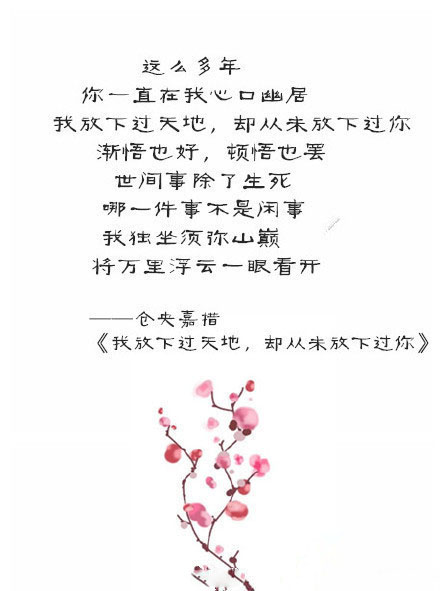 这么多年
你一直在我心口幽居
我放下过天地，却从未放下过你
渐悟也好，顿悟也罢
世间事除了生死
哪一件事不是闲事
我独坐须弥山巅
将万里浮云一眼看开
——仓央嘉措
《我放下过天地，却从未放下过你》